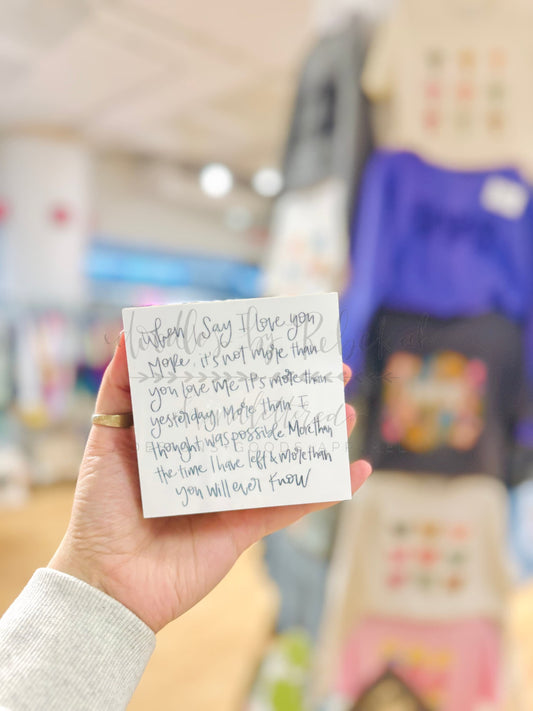 when I say I love you
more, it's not more than
you love me. It's more than
yesterday, More than I
thought was possible. More than
the time I have left & more than
you will ever know